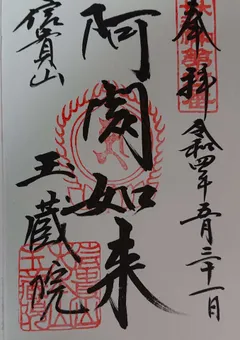 奉拝
令和四年五月三十一日
阿閦如来
信貴山
玉蔵院